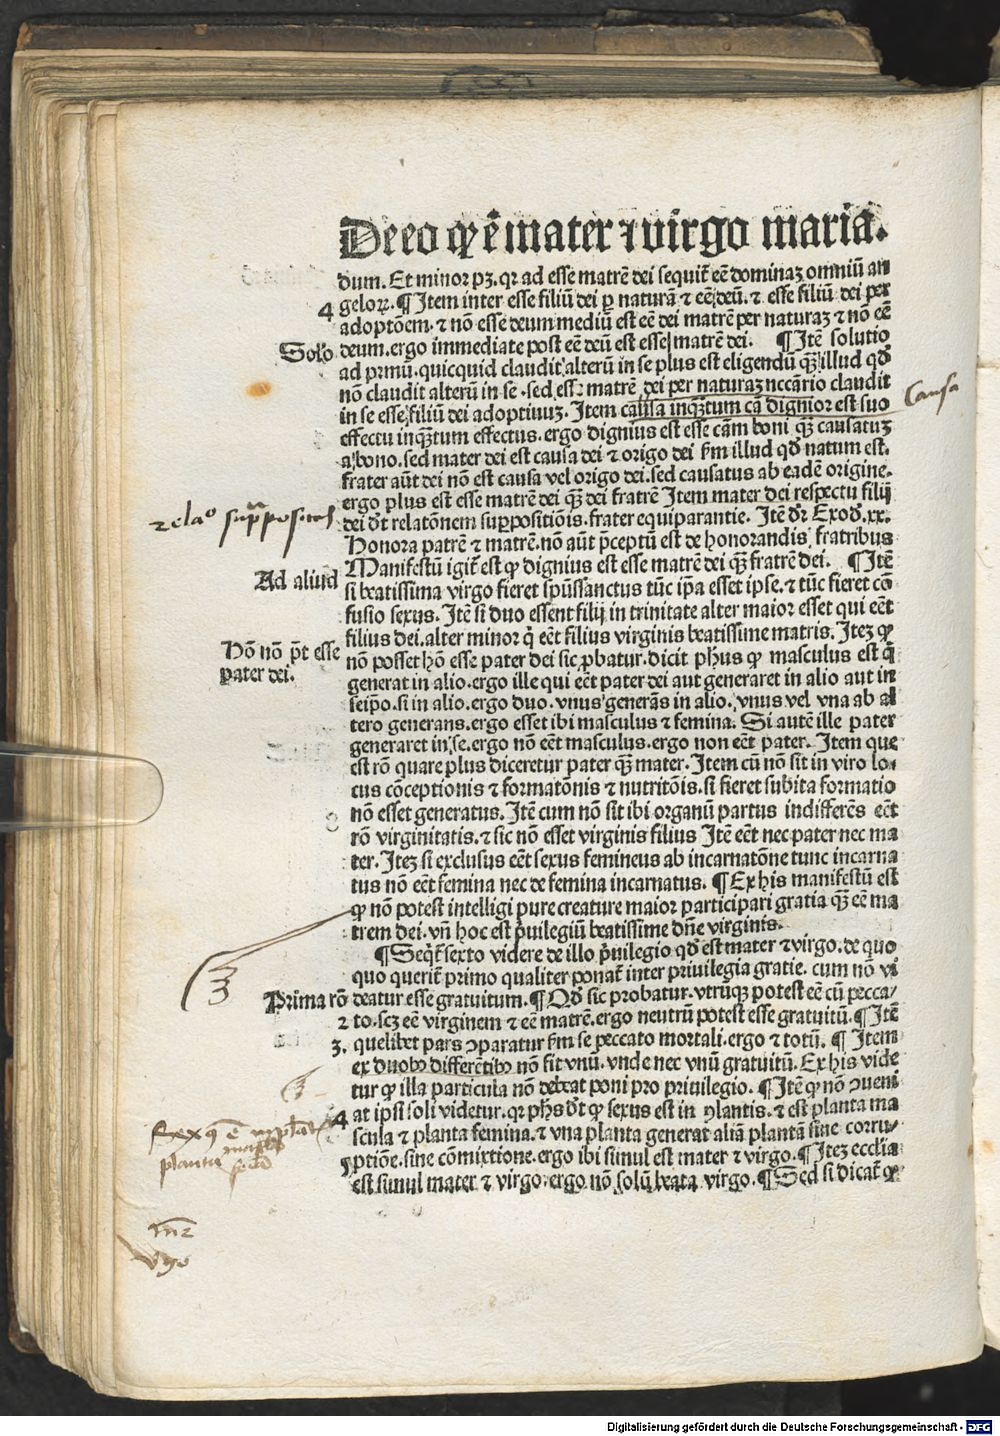 De eo qꝙ ē mater ⁊ virgo maria.
dum. Et minor pꝫ. qꝛ ad esse matrē dei sequit̃ eē dominaꝫ omniū an
4 geloꝝ. ¶ Item inter esse filiū dei ꝑ naturā ⁊ eē deū. ⁊ esse filiū dei per
adoptōem. ⁊ nō esse deum mediū est eē dei matrē per naturaꝫ ⁊ nō eē
Solo deum. ergo immediate post eē deū est esse matrē dei. ¶ Itē solutio
ad prmū. quicquid claudit alterū in se plus est eligendū qꝫ̃ illud qď
nō claudit alterū in se. sed esse matrē dei per naturaꝫ nccārio claudit
in se esse filiū dei adoptiuuꝫ. Item causa inqꝫ̃tum cā dignior est suo
Causa
effectu inqꝫ̃tum effectus. ergo dignius est esse cām boni qꝫ̃ causatuꝫ
a bono. sed mater dei est causa dei ⁊ origo dei ẜm illud qď natum est.
frater aūt dei nō est causa vel origo dei. sed causatus ab eadē origine.
ergo plus est esse matrē dei qꝫ̃ dei fratrē Item mater dei respectu filij
dei dt̄ relatōnem suppositiōis. frater equiparantie. Itē dꝛ̄ Exoď. xx.
Honora patrē ⁊ matrē. nō aūt p̄ceptū est de honorandis fratribus
Manifestū igit̃ est ꝙ dignius est esse matrē dei qꝫ̃ fratrē dei. ¶ Itē
Ad aliud si beatissima virgo fieret spūssanctus tūc ip̄a esset ipse. ⁊ tūc fieret cō
fusio sexus. Itē si duo essent filij in trinitate alter maior esset qui eēt
filius dei. alter minor q̇ eēt filius virginis beatissime matris. Iteꝫ ꝙ
Hō nō pt̄ esse
pater dei.
nō posset hō esse pater dei sic ꝓbatur. dicit phus ꝙ masculus est q̇
generat in alio. ergo ille qui eēt pater dei aut generaret in alio aut in
seip̄o. si in alio. ergo duo. vnus generās in alio. vnus vel vna ab al
tero generans. ergo esset ibi masculus ⁊ femina. Si autē ille pater
generaret in se. ergo nō eēt masculus. ergo non eēt pater. Item que
est rō quare plus diceretur pater qꝫ̃ mater. Item cū nō sit in viro lo
cus cōceptionis ⁊ formatōnis ⁊ nutritōis. si fieret subita formatio
nō esset generatus. Itē cum nō sit ibi organū partus indifferēs eēt
rō virginitatis. ⁊ sic nō esset virginis filius Itē eēt nec pater nec ma
ter. Iteꝫ si exclusus eēt sexus femineus ab incarnatōne tunc incarna
tus nō eēt femina nec de femina incarnatus. ¶ Ex his manifestū est
ꝙ nō potest intelligi pure creature maior participari gratia qꝫ̃ eē ma
trem dei. vn̄ hoc est p̄uilegiū beatissime dn̄e virginis.
¶ Seqt̃ sexto videre de illo p̄uilegio qď est mater ⁊ virgo. de quo
quo querit̃ primo qualiter ponat̃ inter priuilegia gratie. cum nō vi
Prima rō deatur esse gratuitum. ¶ Qď sic probatur. vtrūqꝫ potest eē cū pecca/
2 to. scꝫ eē virginem ⁊ eē matrē. ergo neutrū potest esse gratuitū. ¶ Itē
3. quelibet pars ꝯparatur ẜm se peccato mortali. ergo ⁊ totū. ¶ Item
ex duobꝰ differētibꝰ nō fit vnū. vnde nec vnū gratuitū. Ex his vide
tur ꝙ illa particula nō debeat poni pro priuilegio. ¶ Itē ꝙ nō ꝯueni
4 at ipsi soli videtur. qꝛ phs dt̄ ꝙ sexus est in plantis. ⁊ est planta ma
scula ⁊ planta femina. ⁊ vna planta generat aliā plantā sine corru/
ptiōe. sine cōmixtione. ergo ibi simul est mater ⁊ virgo. ¶ Iteꝫ ecclia
est simul mater ⁊ virgo. ergo nō solū beata virgo. ¶ Sed si dicat̃ ꝙ
Digitalisierung gefördert durch die Deutsche Forschungsgemeinschaft - DFG